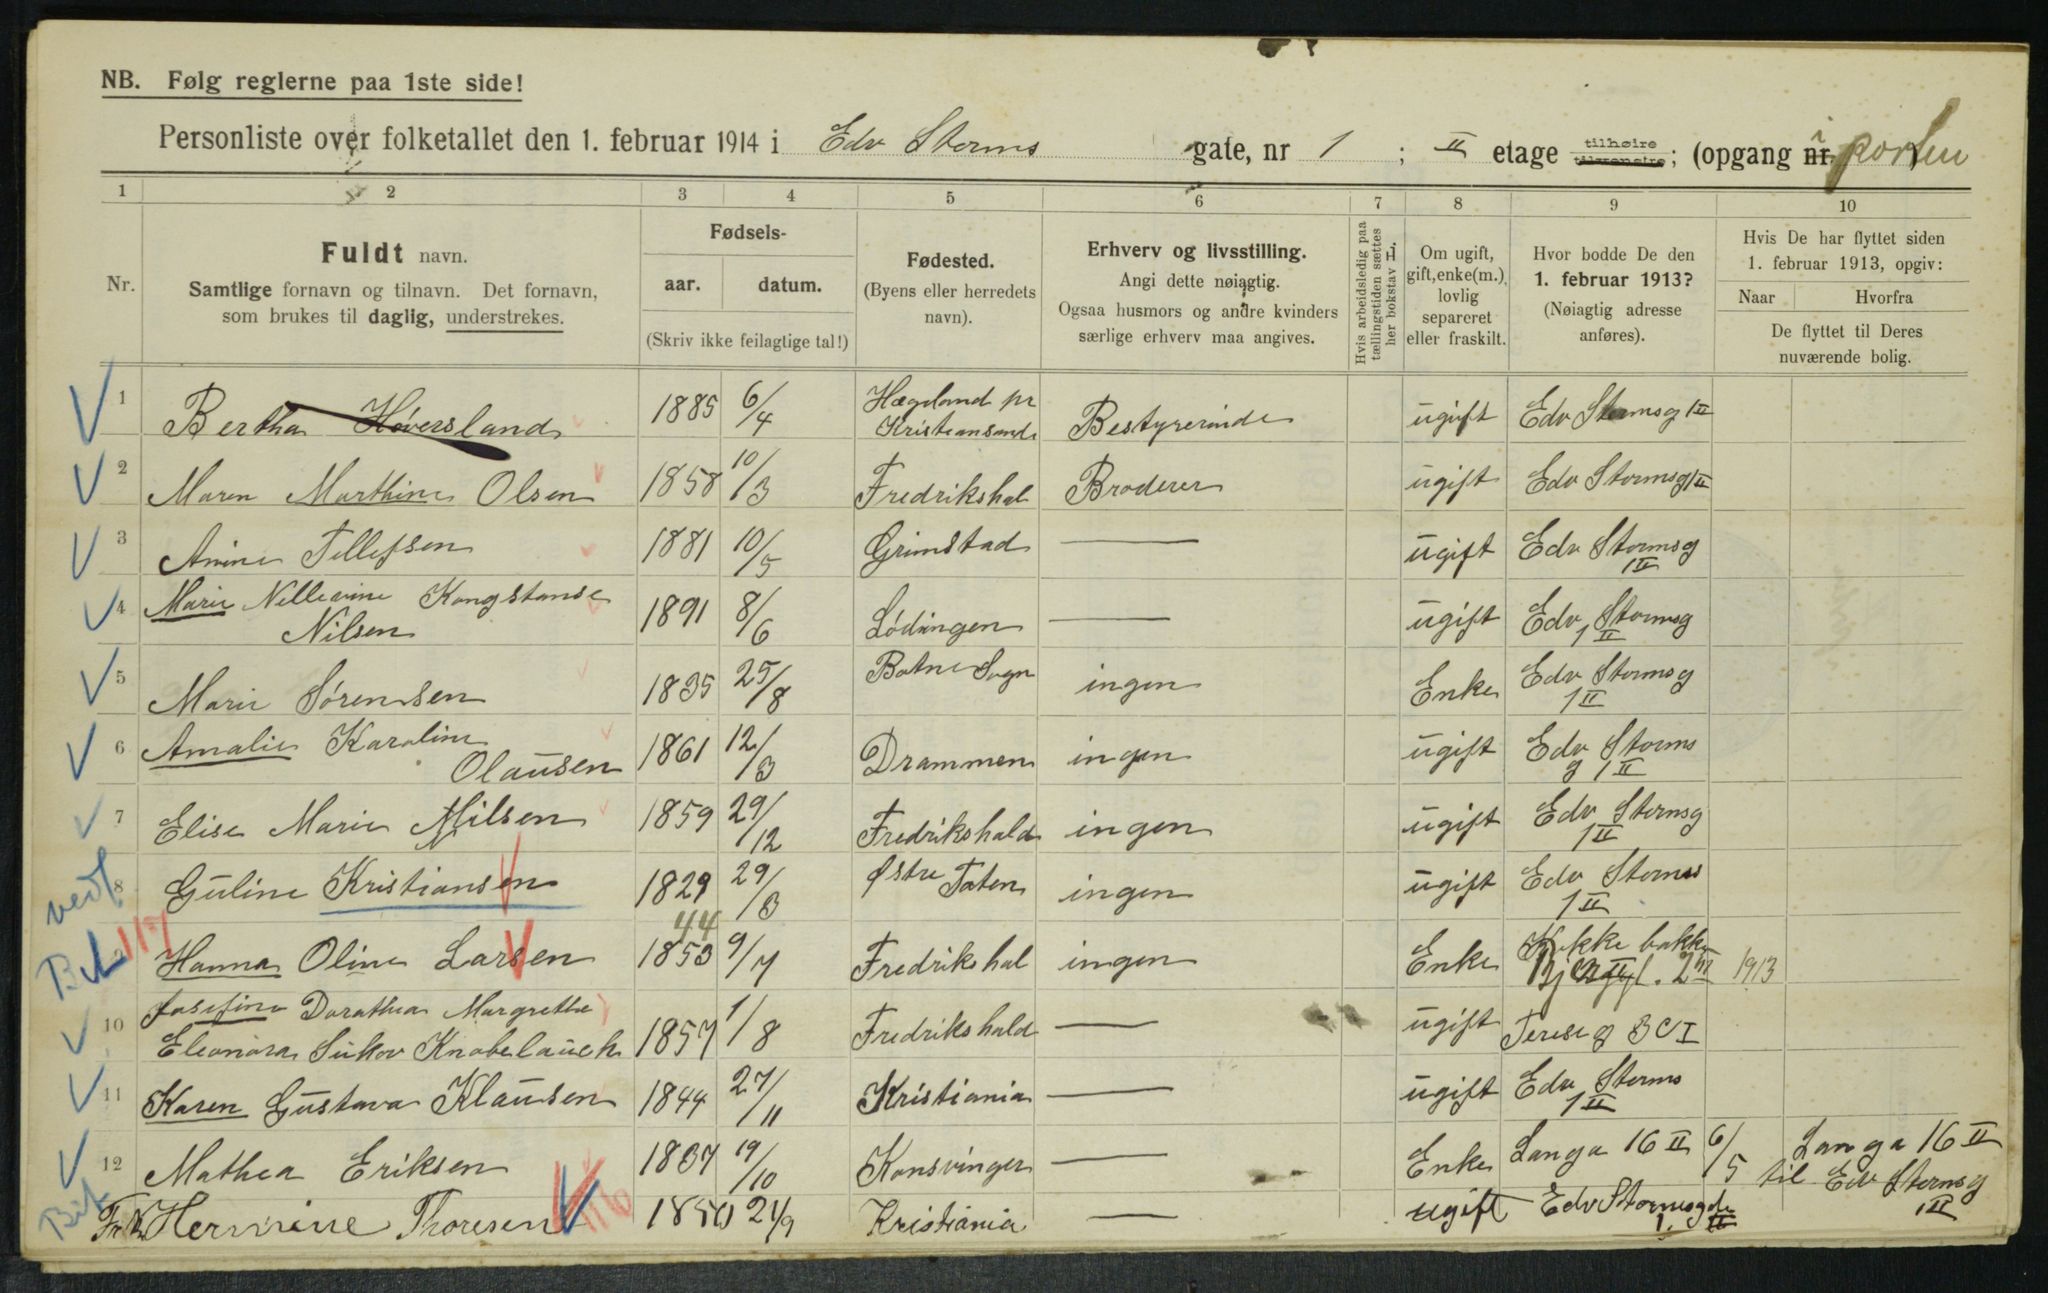 NB. Følg reglerne paa 1ste side!
Personliste over folketallet den 1. februar 1914 i Edv Storms gate, nr 1 ; II etage tilhøire ; (opgang nr. i porten
1 2 3 4 5 6 7 8 9 10
Nr. Fuldt navn. Samtlige fornavn og tilnavn. Det fornavn, som brukes til daglig, understrekes.
Fødsels- aar. datum. (Skriv ikke feilagtige tal!)
Fødested. (Byens eller herredets navn).
Erhverv og livsstilling. Angi dette nøiagtig. Ogsaa husmors og andre kvinders særlige erhverv maa angives.
Hvis arbeidsledig paa tællingstiden sættes her bokstav L.
Om ugift, gift, enke(m.), lovlig separeret eller fraskilt.
Hvor bodde De den 1. februar 1913? (Nøiagtig adresse anføres).
Hvis De har flyttet siden 1. februar 1913, opgiv: Naar Hvorfra De flyttet til Deres nuværende bolig.
1 Bertha Høversland 1885 6/4 Hægeland pr Kristiansand Bestyrerinde ugift Edv Stormsg 1 II
2 Maren Marthine Olsen 1858 10/3 Fredrikshal Broderer ugift Edv Stormsg 1 II
3 Anine Tellefsen 1881 10/5 Grimstad — ugift Edv Stormsg 1 II
4 Marie Nilsen 1891 8/6 Lødingen — ugift Edv Stormsg 1 II
5 Marie Sørensen 1835 25/8 Botne Sogn ingen Enke Edv Stormsg 1 II
6 Amalie Karoline Olausen 1861 12/3 Drammen ingen ugift Edv Storms g 1 II
7 Elise Marie Nilsen 1859 29/12 Fredrikshald ingen ugift Edv Stormsg 1 II
8 Guline Kristiansen 1829 29/3 Østre Toten ingen ugift Edv Storms 1 II
9 Hanna Oline Larsen 44 1853 9/7 Fredrikshal ingen Enke 1913
10 Josefine Dorathea Margrethe
Eleonora Sukov Knobelauch 1857 1/8 Fredrikshald — ugift Tereseg 3 C I
11 Karen Gustava Klausen 1844 27/11 Kristiania — ugift Edv Storms 1 II
12 Mathea Eriksen 1837 19/10 Konsvinger — Enke Langa 16 II 6/5 Langa 16 II
til Edv Stormsg 1 II
Hermine Thoresen 24/9 Kristiania — ugift Edv Stormsgde 1. II